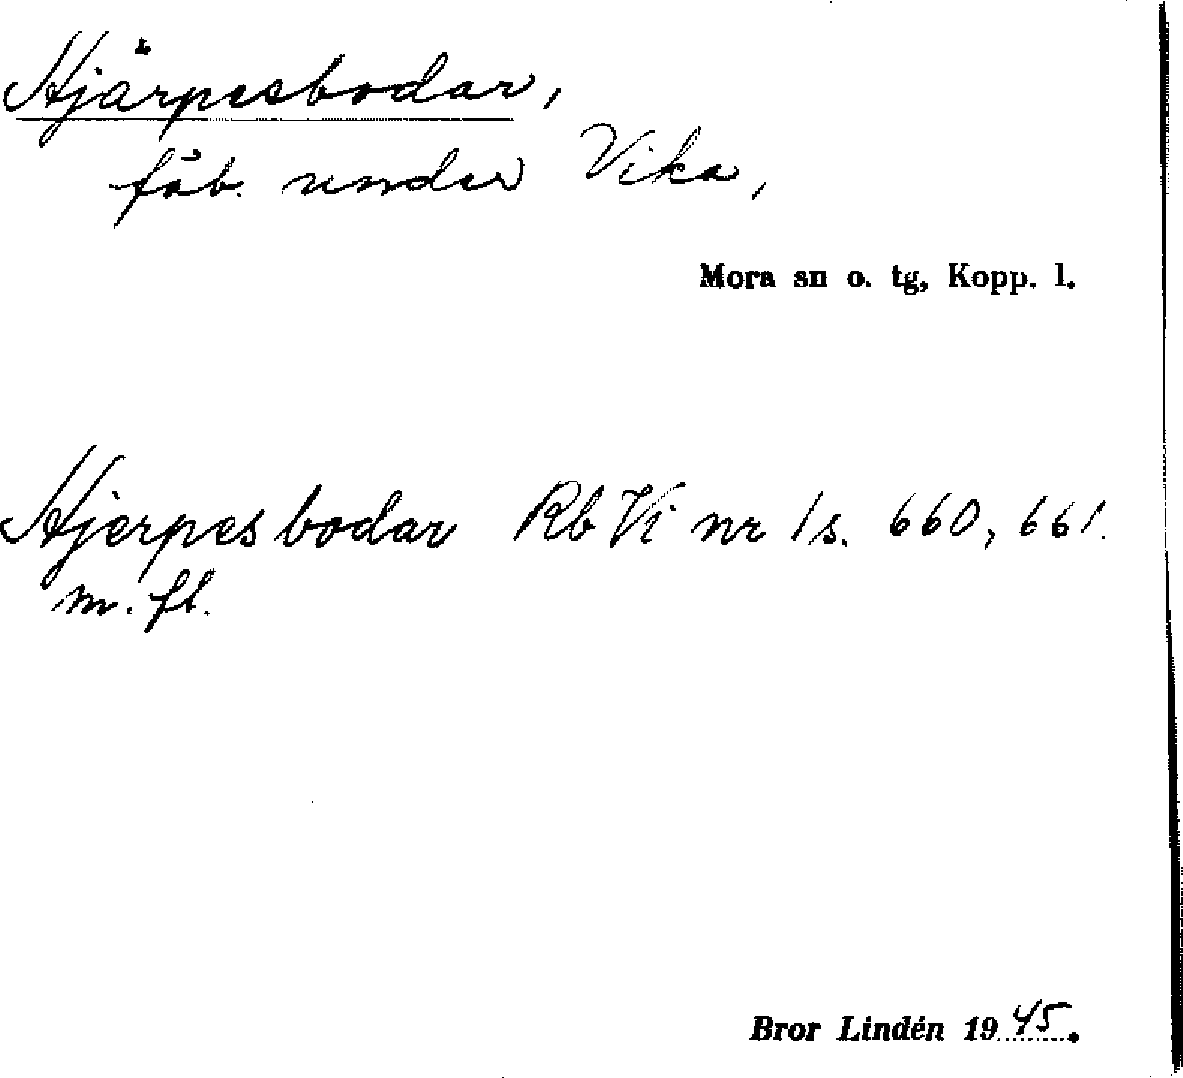 Hjärpesbodar,
fäb. under Vika,
Mora sn o. tg, Kopp. l.
Hjerpesbodar Rb Vi nr 1 s. 660, 661.
m. fl.
Bror Lindén 1945.